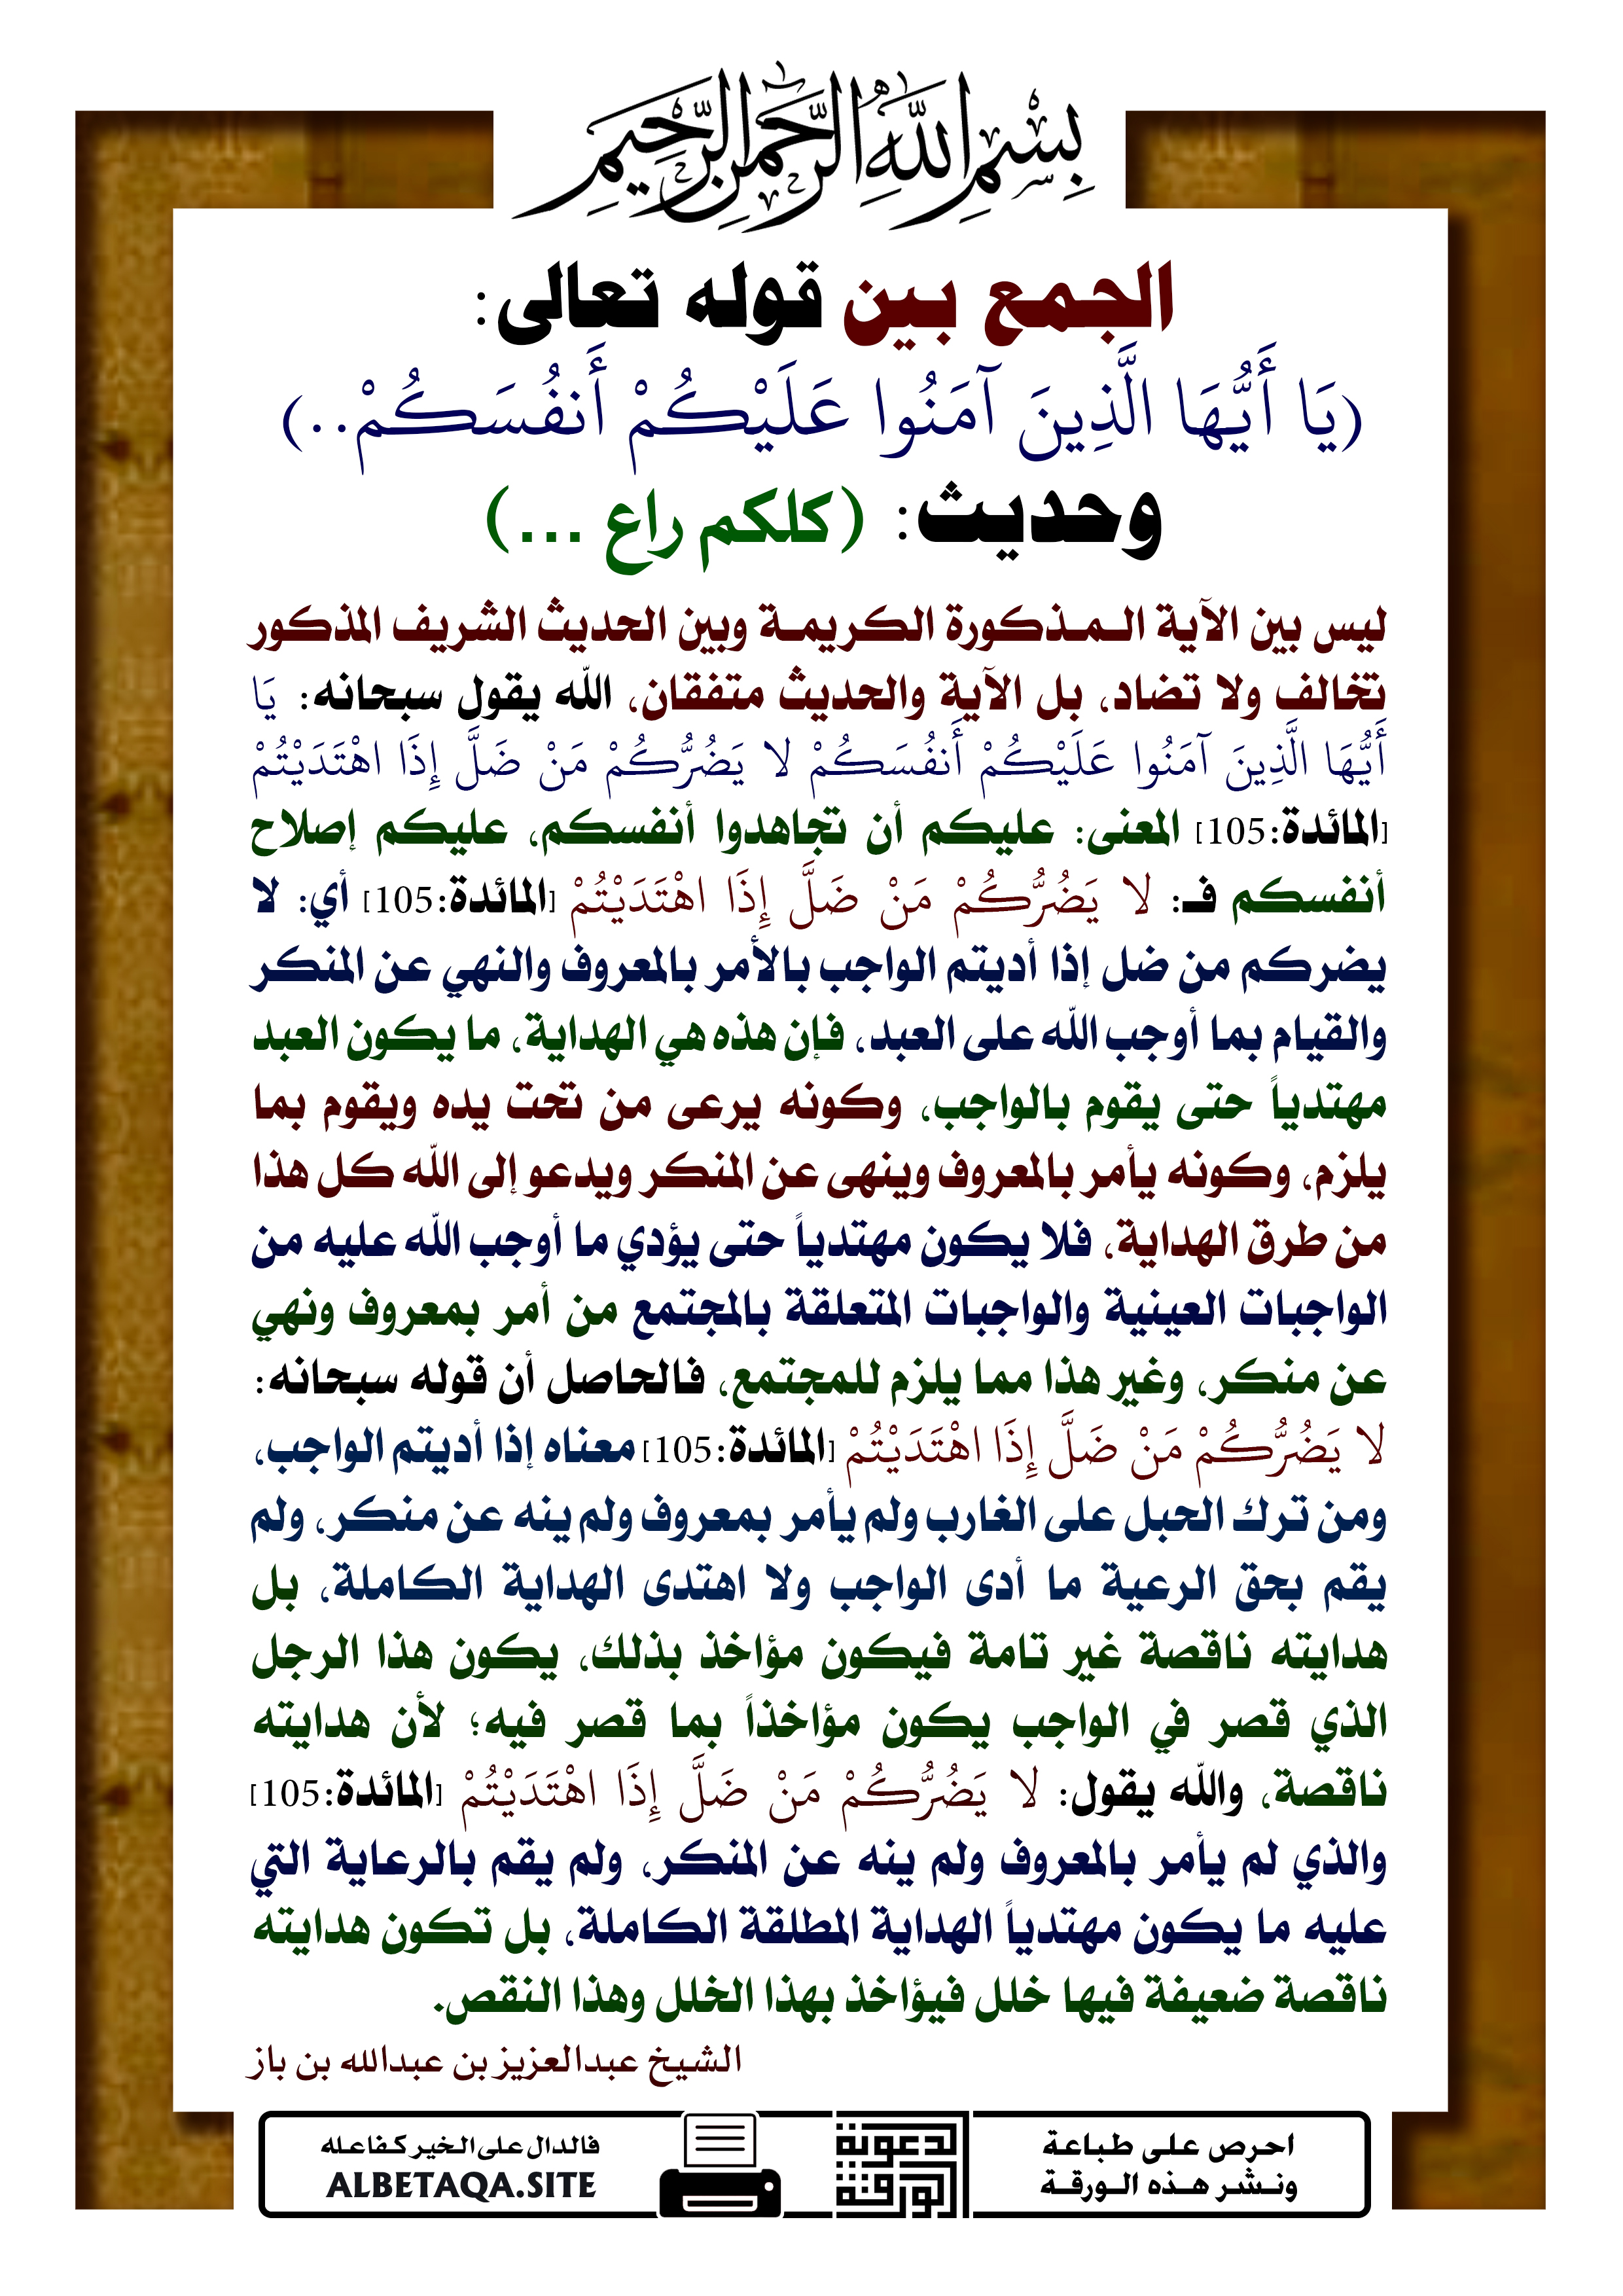 بِسْمِ اللَّهِ الرَّحْمَنِ الرَّحِيمِ
الجمع بين قوله تعالى:
(يَا أَيُّهَا الَّذِينَ آمَنُوا عَلَيْكُمْ أَنفُسَكُمْ..)
وحديث: (كلكم راع ...)
ليس بين الآية المذكورة الكريمة وبين الحديث الشريف المذكور
تخالف ولا تضاد، بل الآية والحديث متفقان، الله يقول سبحانه: يَا
أَيُّهَا الَّذِينَ آمَنُوا عَلَيْكُمْ أَنفُسَكُمْ لا يَضُرُّكُمْ مَنْ ضَلَّ إِذَا اهْتَدَيْتُمْ
[المائدة:105] المعنى: عليكم أن تجاهدوا أنفسكم، عليكم إصلاح
أنفسكم فـ: لا يَضُرُّكُمْ مَنْ ضَلَّ إِذَا اهْتَدَيْتُمْ [المائدة:105] أي: لا
يضركم من ضل إذا أديتم الواجب بالأمر بالمعروف والنهي عن المنكر
والقيام بما أوجب الله على العبد، فإن هذه هي الهداية، ما يكون العبد
مهتدياً حتى يقوم بالواجب، وكونه يرعى من تحت يده ويقوم بما
يلزم، وكونه يأمر بالمعروف وينهى عن المنكر ويدعو إلى الله كل هذا
من طرق الهداية، فلا يكون مهتدياً حتى يؤدي ما أوجب الله عليه من
الواجبات العينية والواجبات المتعلقة بالمجتمع من أمر بمعروف ونهي
عن منكر، وغير هذا مما يلزم للمجتمع، فالحاصل أن قوله سبحانه:
لا يَضُرُّكُمْ مَنْ ضَلَّ إِذَا اهْتَدَيْتُمْ [المائدة:105] معناه إذا أديتم الواجب،
ومن ترك الحبل على الغارب ولم يأمر بمعروف ولم ينه عن منكر، ولم
يقم بحق الرعية ما أدى الواجب ولا اهتدى الهداية الكاملة، بل
هدايته ناقصة غير تامة فيكون مؤاخذ بذلك، يكون هذا الرجل
الذي قصر في الواجب يكون مؤاخذاً بما قصر فيه؛ لأن هدايته
ناقصة، والله يقول: لا يَضُرُّكُمْ مَنْ ضَلَّ إِذَا اهْتَدَيْتُمْ [المائدة:105]
والذي لم يأمر بالمعروف ولم ينه عن المنكر، ولم يقم بالرعاية التي
عليه ما يكون مهتدياً الهداية المطلقة الكاملة، بل تكون هدايته
ناقصة ضعيفة فيها خلل فيؤاخذ بهذا الخلل وهذا النقص.
الشيخ عبدالعزيز بن عبدالله بن باز
احرص على طباعة
ونشر هذه الورقة
الورقة
لدعوية
فالدال على الخير كفاعله
ALBETAQA.SITE